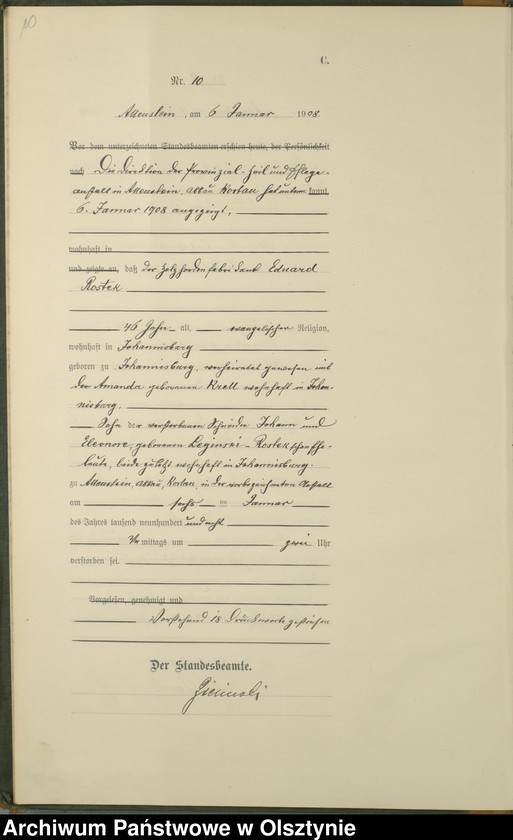 10
C.
Nr. 10
Allenstein, am 6 Januar 1908.
Vor dem unterzeichneten Standesbeamten erschien heute, der Persönlichkeit
nach Die Direktion der Provinzial-Heil und Pflege-
anstalt in Allenstein, Kortau hat unterm kannt,
6. Januar 1908 angezeigt,
wohnhaft in
und zeigte an, daß der Eduard
Rostek
46 Jahre alt, evangelischer Religion,
wohnhaft in Johannisburg
geboren zu Johannisburg, verheiratet gewesen mit
der Amanda geborenen Krell wohnhaft in Johan-
nisburg,
Sohn der verstorbenen Schneider Johann und
Eleonore, geborenen Leginski-Rostek schen Ehe-
leute, beide zuletzt wohnhaft in Johannisburg.
zu Allenstein, Kortau, in der vorbezeichneten Anstalt
am sechs ten Januar
des Jahres tausend neunhundert und acht
Vor mittags um zwei Uhr
verstorben sei.
Vorgelesen, genehmigt und
Vorstehend 18 Druckworte gestrichen
Der Standesbeamte.
Archiwum Państwowe w Olsztynie